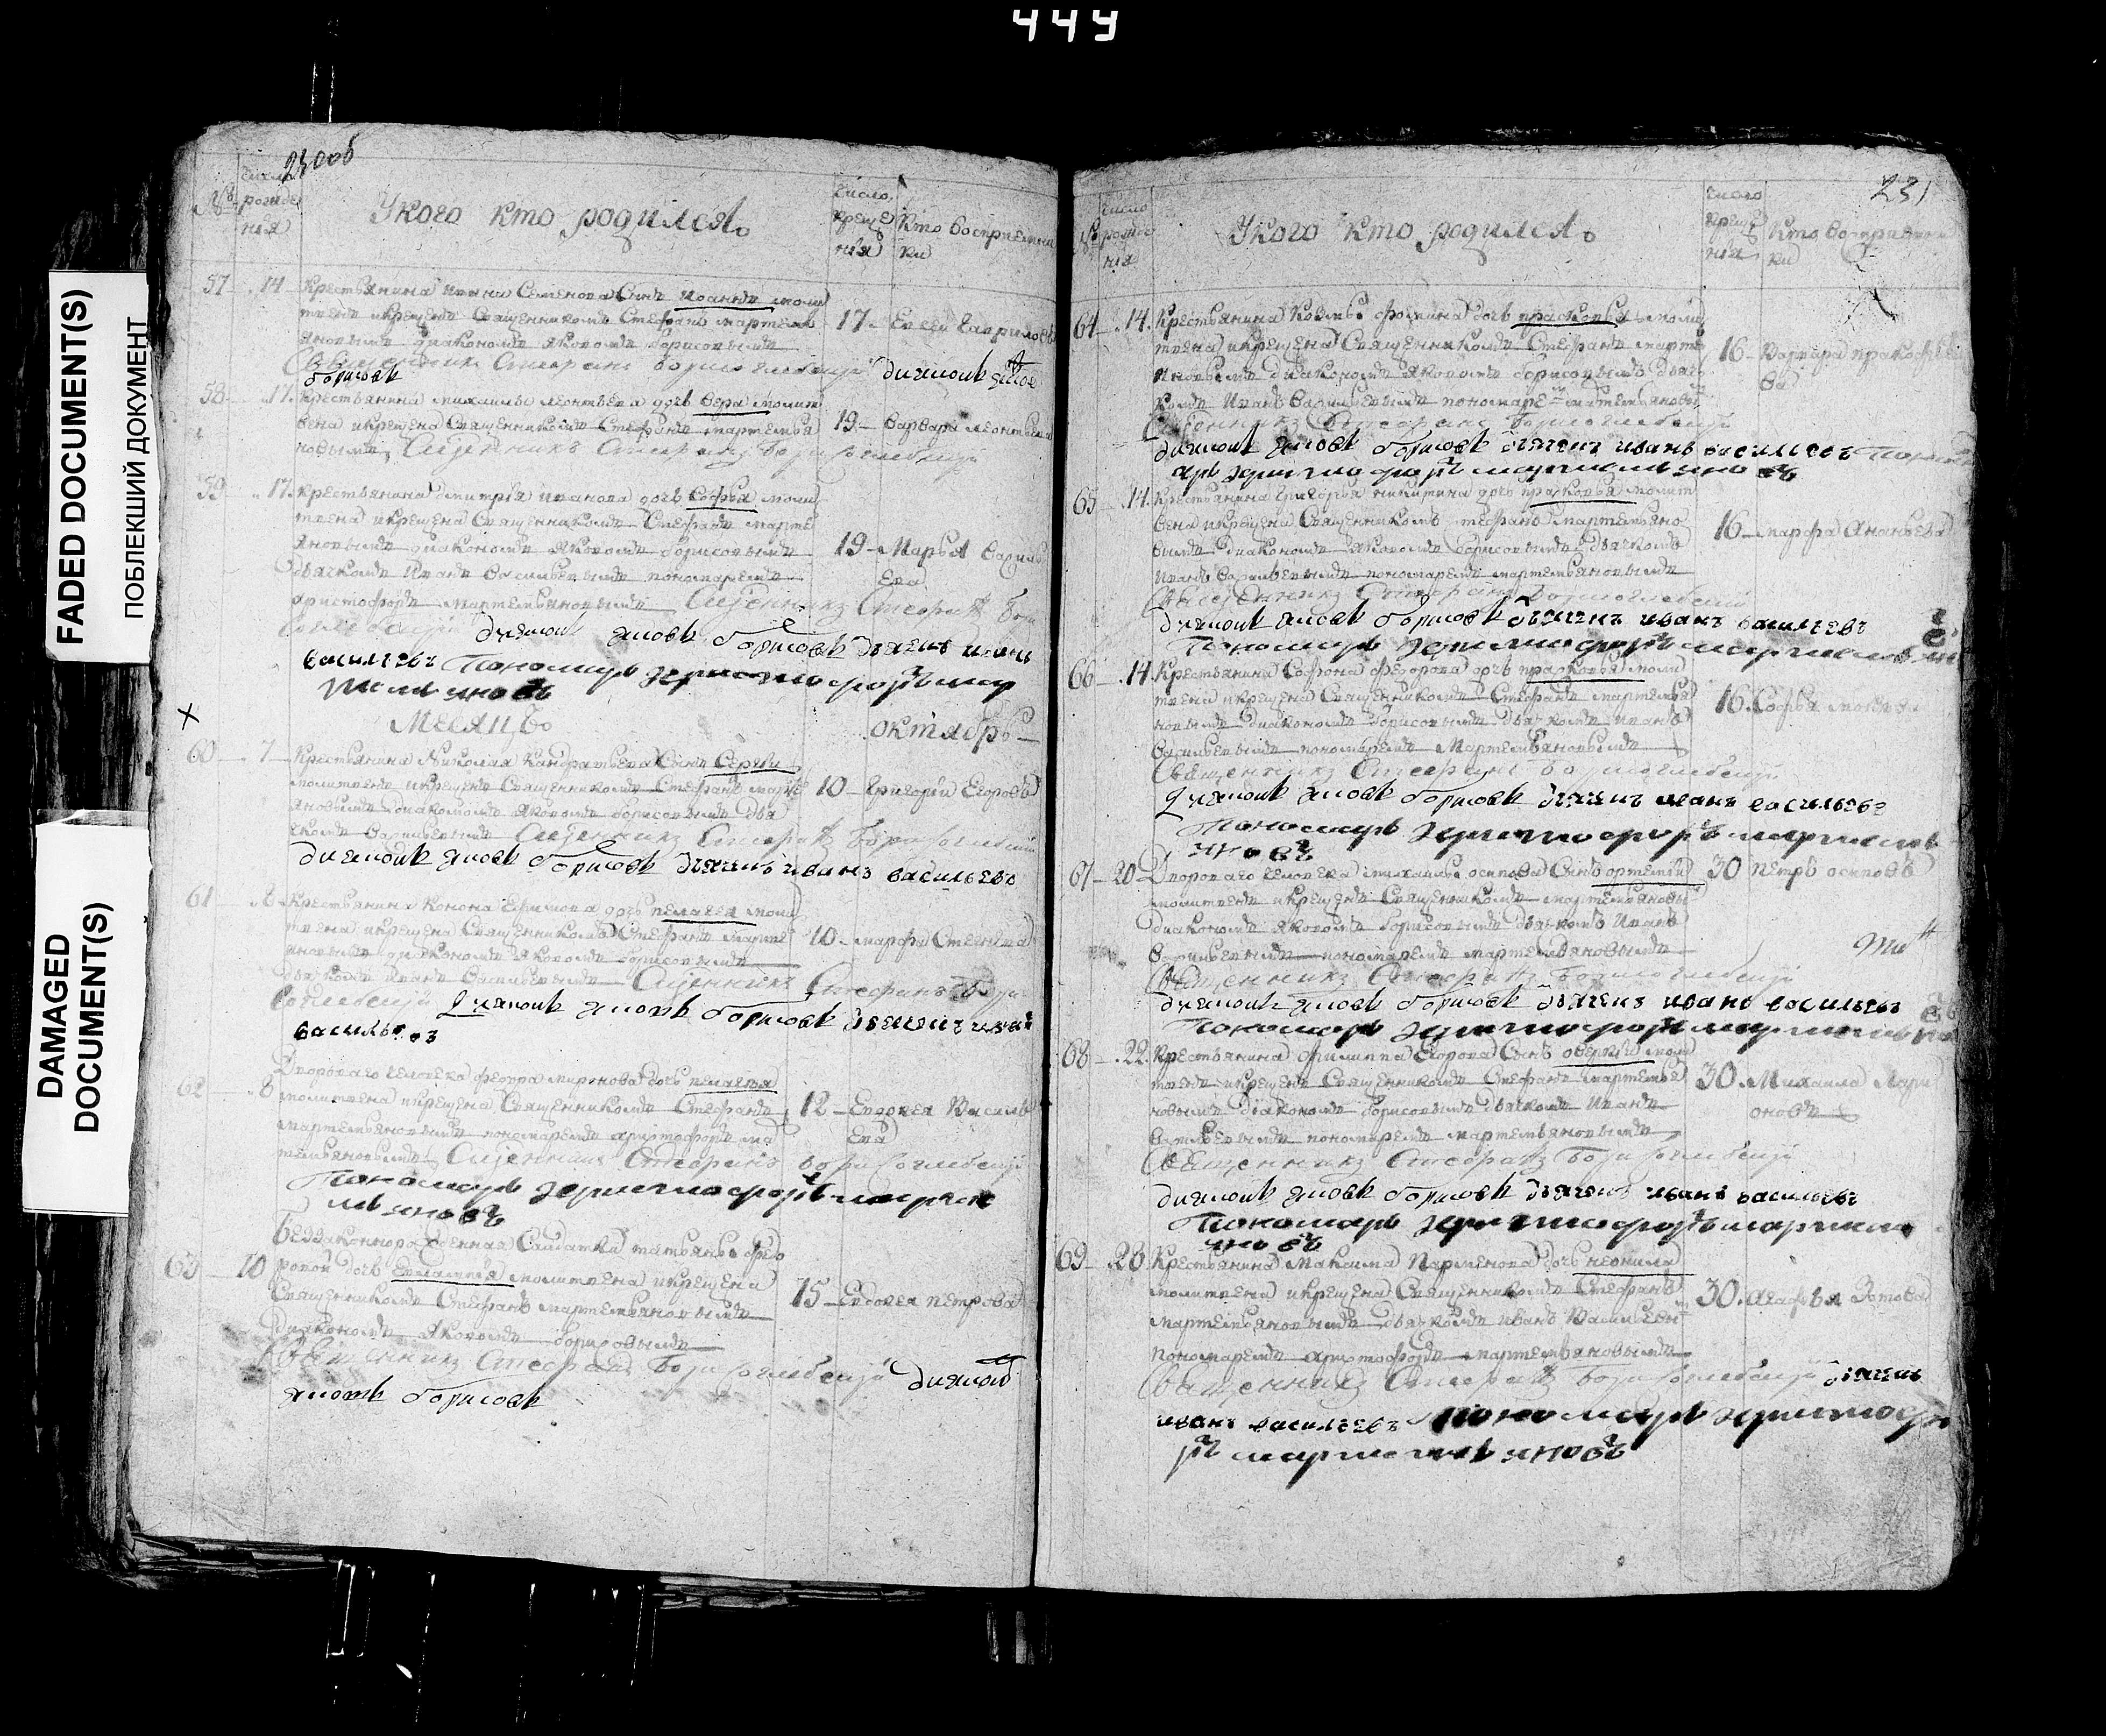 449
FADED DOCUMENT(S)
ПОБЛЕКШИЙ ДОКУМЕНТ
DAMAGED
DOCUMENT(S)
230об
число рожде нія
У кого кто родился
число креще нія
кто восприемни ки
57 14 Крестьянина Ивана Семенова сынъ Иоаннъ моли
твенъ и крещенъ священникомъ Стефанъ мартемь
яновымъ диакономъ яковомъ борисовымъ
17 Елеси Гаврилова
Священникъ Стефанъ борисоглебский диаконъ яковъ
борисовъ
58 17 Крестьянина михаилы леонтьева дочь вера молит
вена и крещена священникомъ стефанъ мартемья
новымъ Священникъ Стефанъ борисоглебский
19 варвара леонтьева
59 17 Крестьянина дмитрія иванова дочь Софья моли
твена и крещена священникомъ Стефанъ марте
яновымъ диакономъ яковомъ борисовымъ
дьячкомъ Иванъ васильевымъ пономаремъ
христофоръ мартемьяновымъ Священникъ Стефанъ бори
соглебский диаконъ яковъ борисовъ дьячекъ иванъ
васильевъ Пономарь христофоръ мар
темьяновъ
19 Марья василь
ева
Месяцъ октябрь
60 7 Крестьянина Николая Кандратьева сынъ Сергеи
молитвенъ и крещенъ священникомъ Стефанъ марте
яновымъ диакономъ яковомъ борисовымъ дья
чкомъ васильевымъ Священникъ Стефанъ борисоглебский
диаконъ яковъ борисовъ дьячекъ иванъ васильевъ
10 Григорій Егоровъ
61 8 Крестьянина Конона Ефимова дочь пелагея моли
твена и крещена священникомъ Стефанъ марте
яновымъ диакономъ яковомъ борисовымъ
дьячкомъ иванъ васильевымъ Священникъ Стефанъ бори
соглебский диаконъ яковъ борисовъ дьячекъ иванъ
васильевъ
10 марфа Стегнева
62 8 Дворового человека феодра миронова дочь пелагея
молитвена и крещена священникомъ Стефанъ
мартемьяновымъ пономаремъ христофоръ ма
темьяновымъ Священникъ Стефанъ борисоглебский
Пономарь христофоръ марте
мьяновъ
12 Евдокея Василь
ева
63 10 беззаконнорожденная Салдатки татьяны фео
ровой дочь молитвена и крещена
священникомъ Стефанъ мартемьяновымъ
диакономъ яковомъ борисовымъ
Священникъ Стефанъ борисоглебский диаконъ
яковъ борисовъ
15 Евдокея петрова
231
число рожде нія
У кого кто родился
число креще нія
кто восприемни ки
64 14 Крестьянина Козьмы фомина дочь прасковья моли
твена и крещена священникомъ Стефанъ мартемь
яновымъ диакономъ яковомъ борисовымъ дьяч
комъ Иванъ васильевымъ пономаре мартемьяновы
Священникъ Стефанъ борисоглебский
диаконъ яковъ борисовъ дьячекъ иванъ васильевъ поном
арь христофоръ мартемьяновъ
16 Варвара пракофье
ва
65 14 Крестьянина Григорья никитина дочь прасковья молит
вена и крещена священникомъ стефанъ мартемьяно
вымъ диакономъ яковомъ борисовымъ дьячкомъ
иванъ васильевымъ пономаремъ мартемьяновымъ
Священникъ Стефанъ борисоглебский
диаконъ яковъ борисовъ дьячекъ иванъ васильевъ
Пономарь христофоръ мартемьян
16 марфа Ананьева
66 14 Крестьянина Софона феодорова дочь прасковья моли
твена и крещена священникомъ Стефанъ мартемья
новымъ диакономъ борисовымъ дьячкомъ иванъ
васильевымъ пономаремъ Мартемьяновымъ
Священникъ Стефанъ борисоглебский
диаконъ яковъ борисовъ дьячекъ иванъ васильевъ
Пономарь христофоръ мартемь
яновъ
16 Софья
67 20 Дворового человека михаилы осипова сынъ ортемий
молитвенъ и крещенъ священникомъ мартемьяновы
диакономъ яковомъ борисовымъ дьячкомъ иванъ
васильевымъ пономаремъ мартемьяновымъ
Священникъ Стефанъ борисоглебский
диаконъ яковъ борисовъ дьячекъ иванъ васильевъ
Пономарь христофоръ мартемьянов
30 петръ осиповъ
68 22 Крестьянина филиппа Егорова сынъ аверкій моли
твенъ и крещенъ священникомъ Стефанъ мартемья
новымъ диакономъ борисовымъ дьячкомъ иванъ
васильевымъ пономаремъ мартемьяновымъ
Священникъ Стефанъ борисоглебский
диаконъ яковъ борисовъ дьячекъ иванъ васильевъ
Пономарь христофоръ мартемь
яновъ
30 Михаила Лари
оновъ
69 28 Крестьянина Максима Парменова дочь неонила
молитвена и крещена священникомъ Стефанъ
мартемьяновымъ дьячкомъ иванъ васильевы
пономаремъ христофоръ мартемьяновымъ
Священникъ Стефанъ борисоглебский дьячекъ
иванъ васильевъ пономарь христофо
ръ мартемьяновъ
30 Агафья Зотова